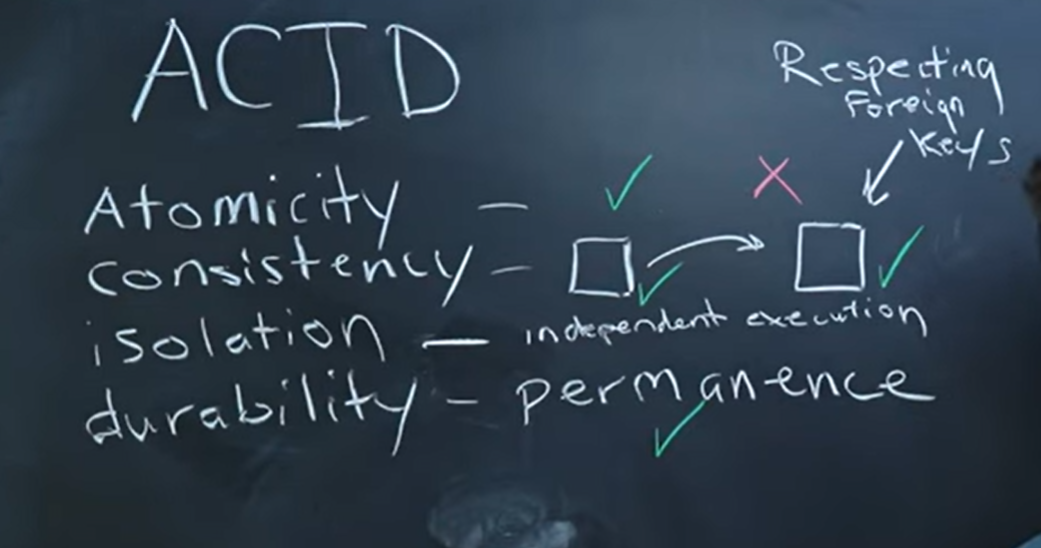 ACID
Respecting
Foreign
Keys
Atomicity –
consistency –
isolation – independent execution
durability – permanence